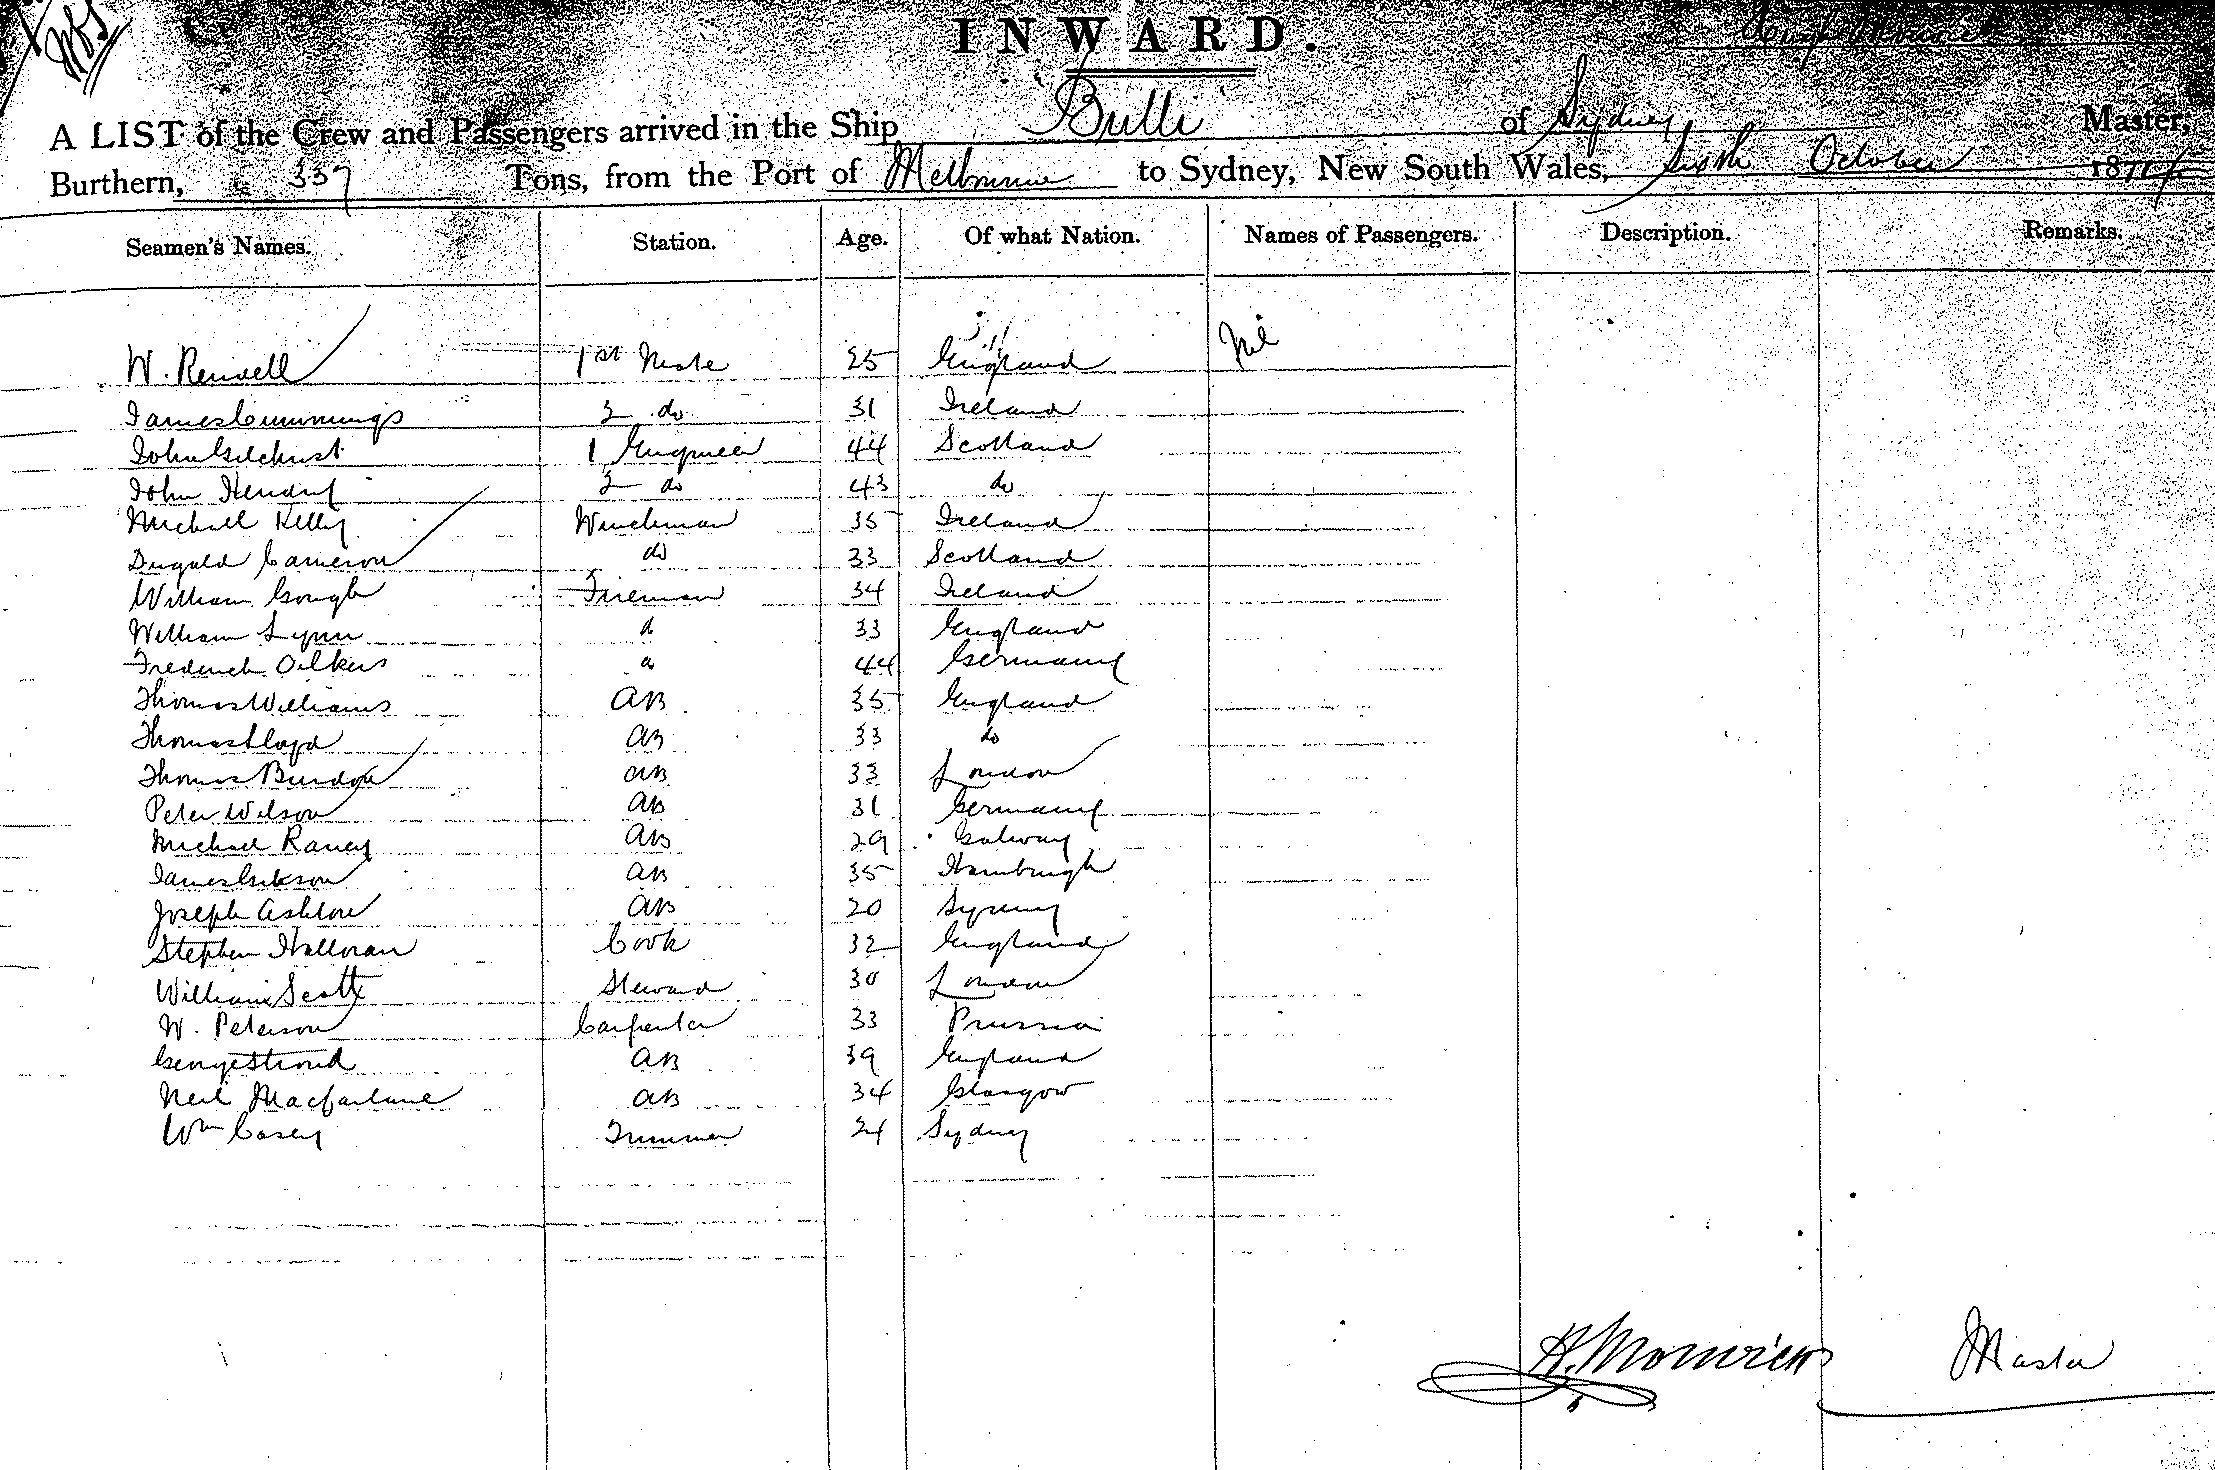 INWARD.
A LIST of the Crew and Passengers arrived in the Ship Bulli of Sydney Master,
Burthern, 337 Tons, from the Port of Melbourne to Sydney, New South Wales, Sixth October 187
Seamen's Names. Station. Age. Of what Nation. Names of Passengers. Description. Remarks.
W. 1st Mate 25 England Nil
James Cummings 2 do 31 Ireland
John Gilchrist 1 Engineer 44 Scotland
John 2 do 43 do
Michael Kelly Winchman 35 Ireland
Dugald Cameron do 33 Scotland
William Gough Fireman 34 Ireland
William Lynn do 33 England
Frederick Oelkers do 44 Germany
Thomas Williams AB 35 England
Thomas Lloyd AB 33 do
Thomas Burdon AB 33 London
Peter Wilson AB 31 Germany
Michael Raney AB 29 Galway
James AB 35 Hamburgh
Joseph Ashton AB 20 Sydney
Stephen Halloran Cook 32 England
William Scott Steward 30 London
W. Peterson Carpenter 33 Prussia
George Stroud AB 39 England
Neil Macfarlane AB 34 Glasgow
Wm Casey Trimmer 24 Sydney
Master